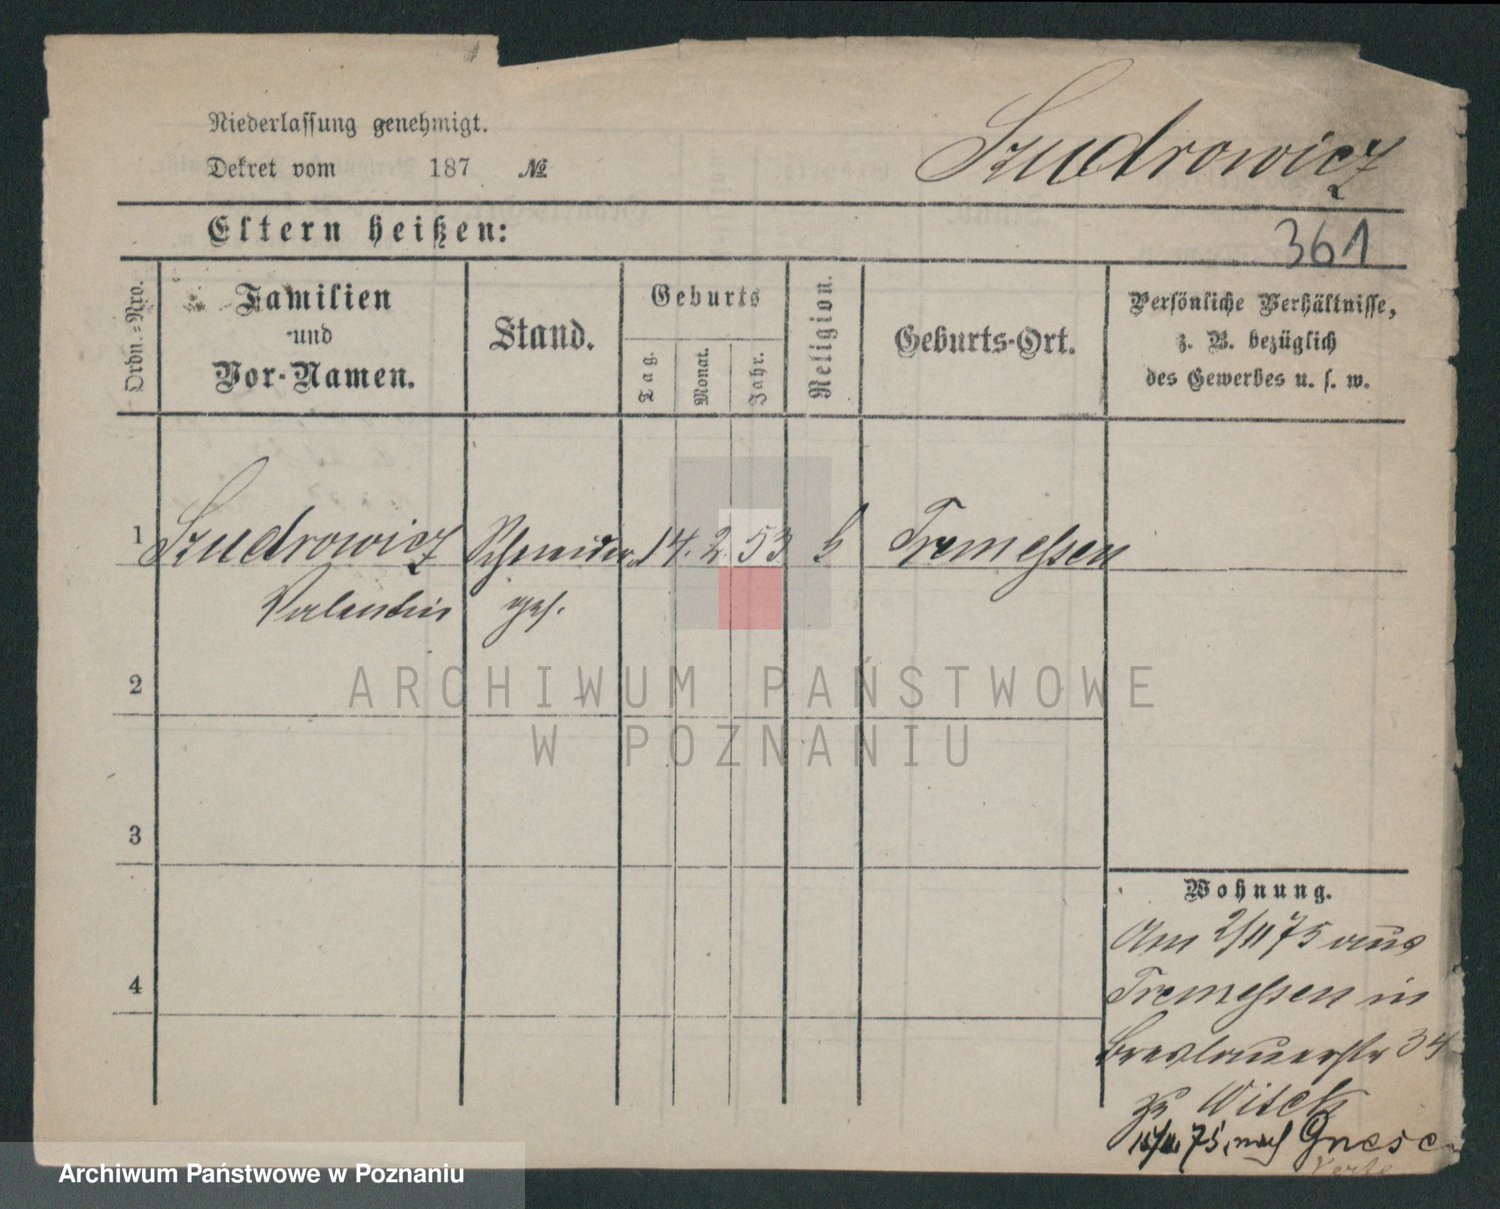 Niederlassung genehmigt.
Dekret vom 187 №
Szudrowicz
Eltern heißen:
361
Ordn.=Nro.
Familien
und
Vor-Namen.
Stand.
Geburts
Tag.
Monat.
Jahr.
Religion.
Geburts-Ort.
Persönliche Verhältnisse,
z. B. bezüglich
des Gewerbes u. s. w.
1 Szudrowicz Schneider 14. 2. 53 Tremessen
Valentin ges.
2
3
4
Wohnung.
Am 2/11 75 aus
Tremessen in
Breslauerstr 34
zu Witek
75, nach Gnese
Verte
ARCHIWUM PAŃSTWOWE
W POZNANIU
Archiwum Państwowe w Poznaniu